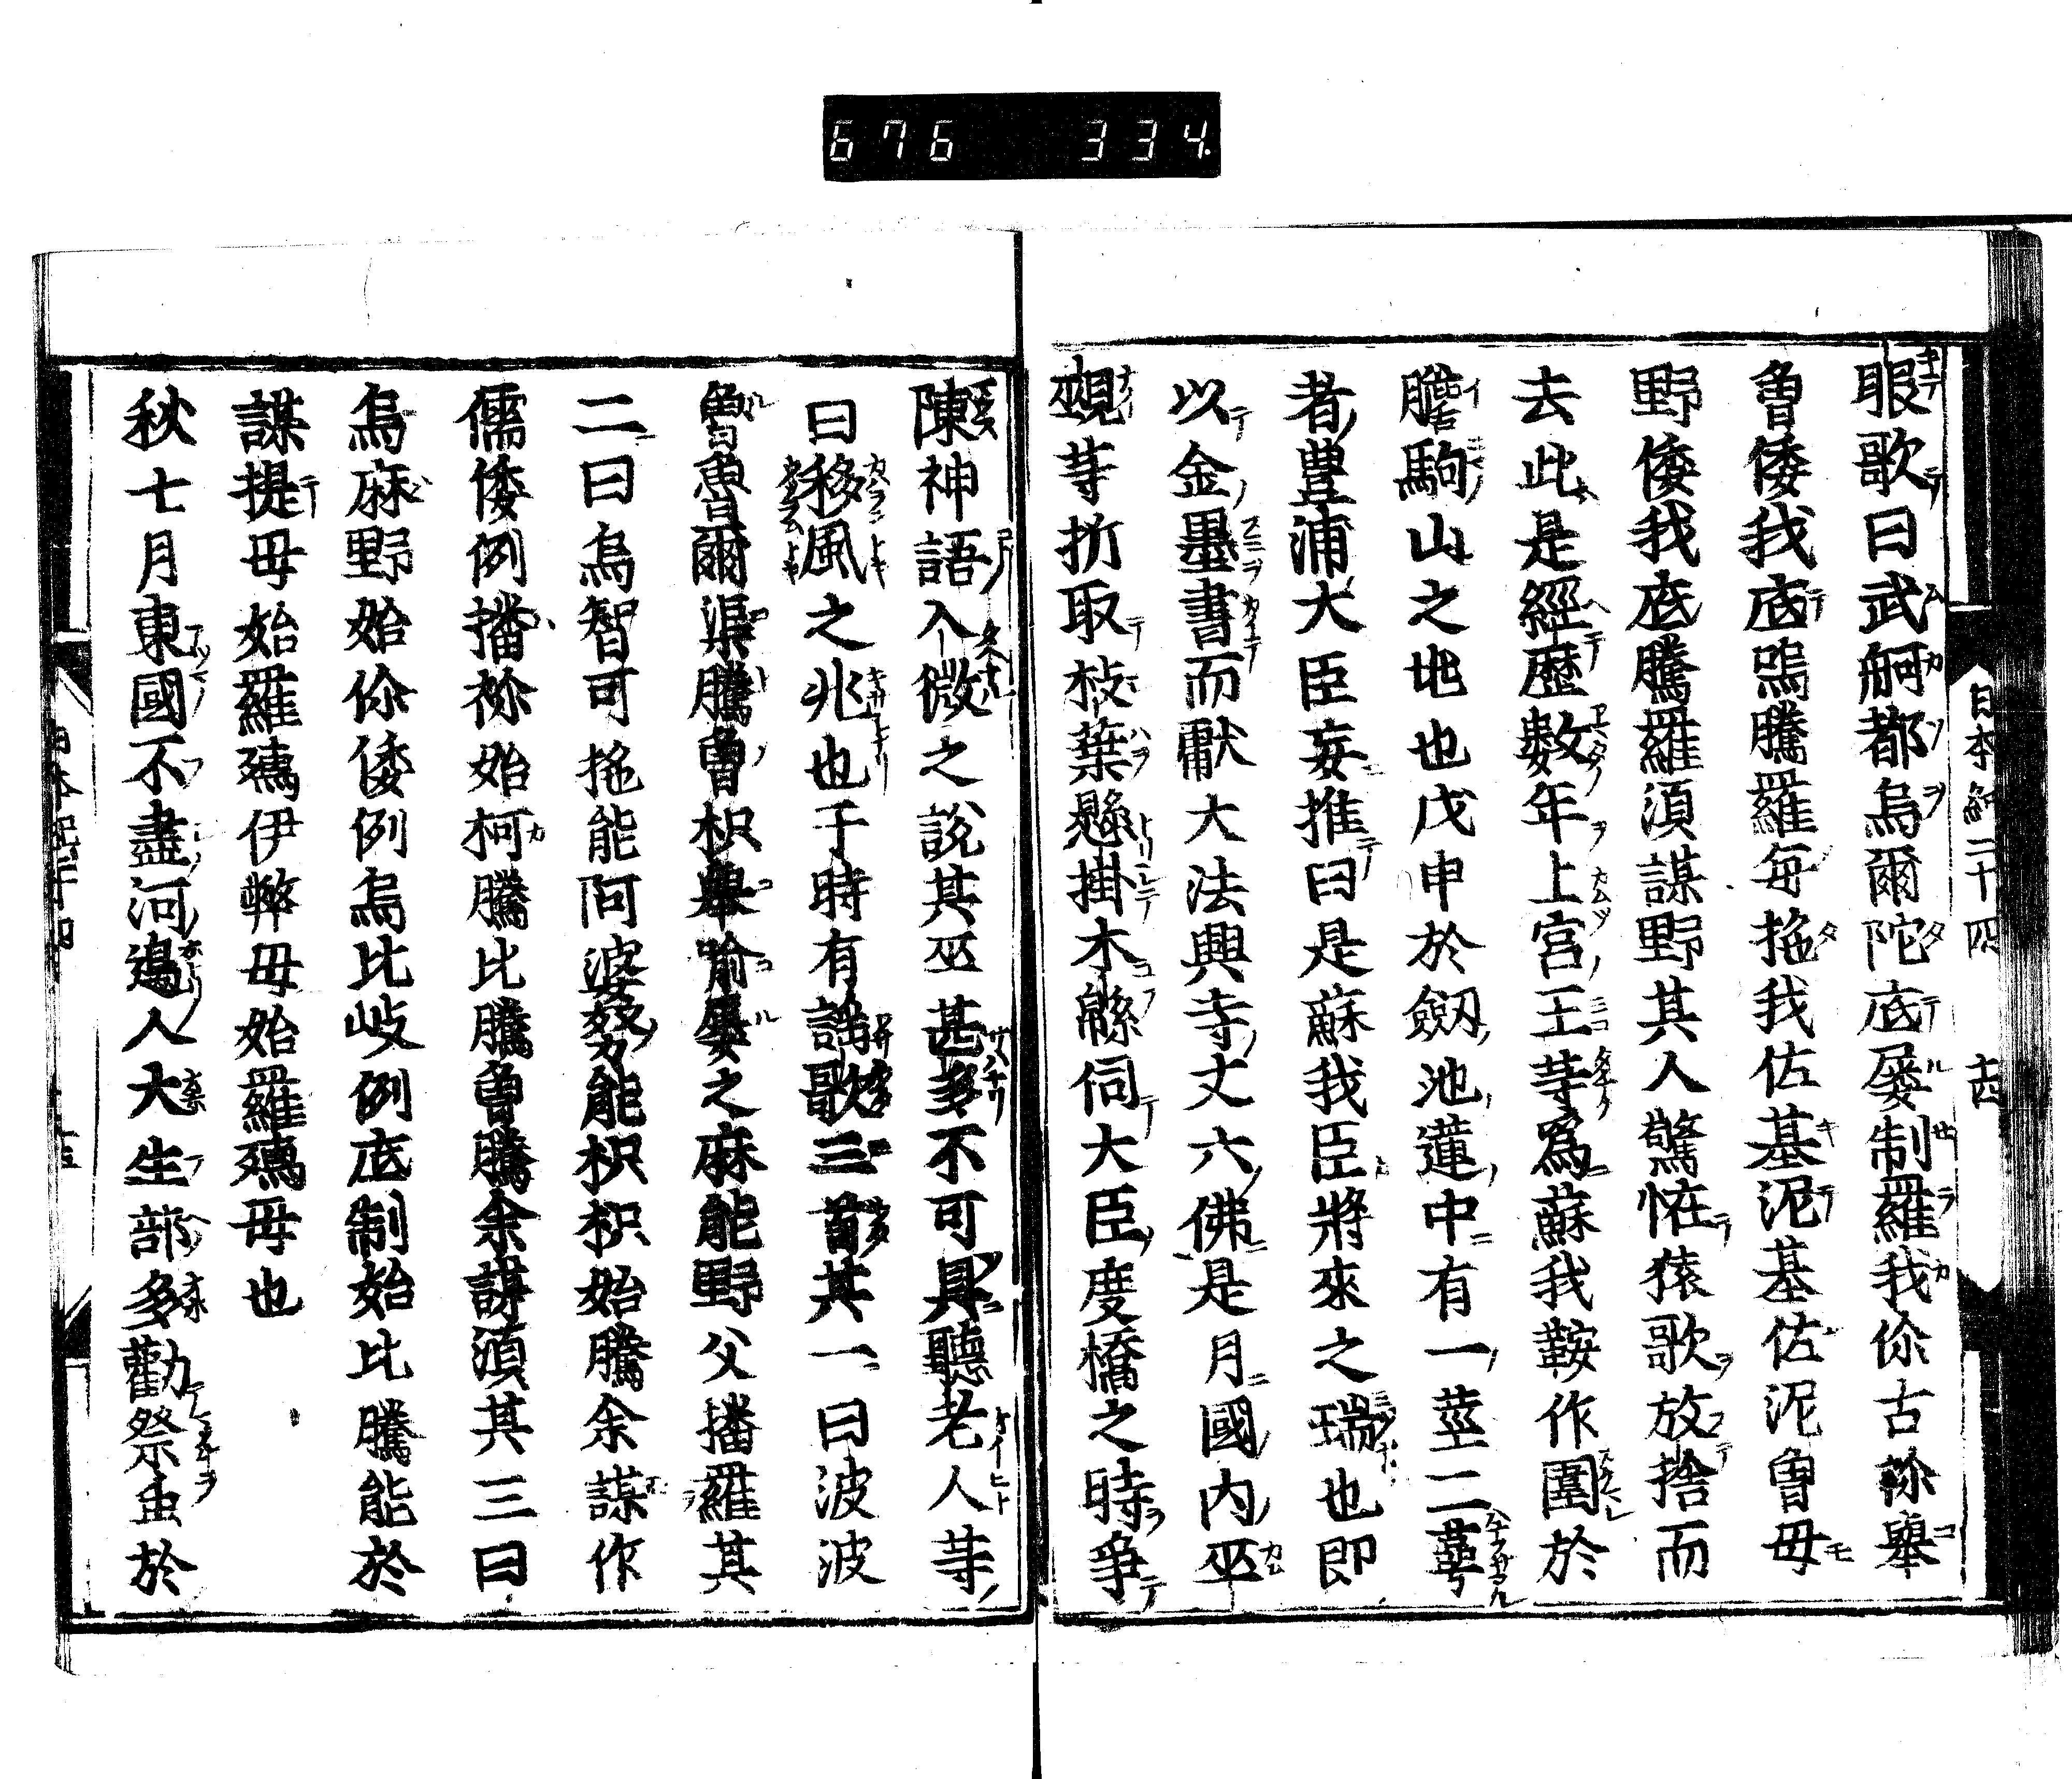 676 334.
日本紀二十四 十四
眠歌曰武舸都烏爾陀底屡制羅我伱古泺擧
魯倭我底嗚騰羅毎拖我佐基泥基佐泥曾母
野倭我底騰羅湏謀野其人驚恠猿歌放捨而
去此是經歴數年上宮王等爲蘇我鞍作圍於
膽駒山之地也戊申於劒池蓮中有一莖二蕚
者豊浦大臣妄推曰是蘇我臣將來之瑞也即
以金墨書而獻大法興寺丈六佛是月國内巫
覡等折取枝葉懸掛木緜伺大臣度橋之時爭
陳神語入微之說其巫甚多不可具聽老人等
曰移風之兆也于時有謡歌三首其一曰波波
魯魯爾渠騰曾枳擧喩屢之麻能野父播羅其
二曰烏智可拖能阿婆努能枳枳始騰余謀作
儒倭例播祢始柯騰比騰曾騰余謀湏其三曰
烏麻野始伱倭例烏比岐例底制始比騰能於
謀提母始羅孺伊弊母始羅孺母也
秋七月東國不盡河邉人大生部多勸祭虫於